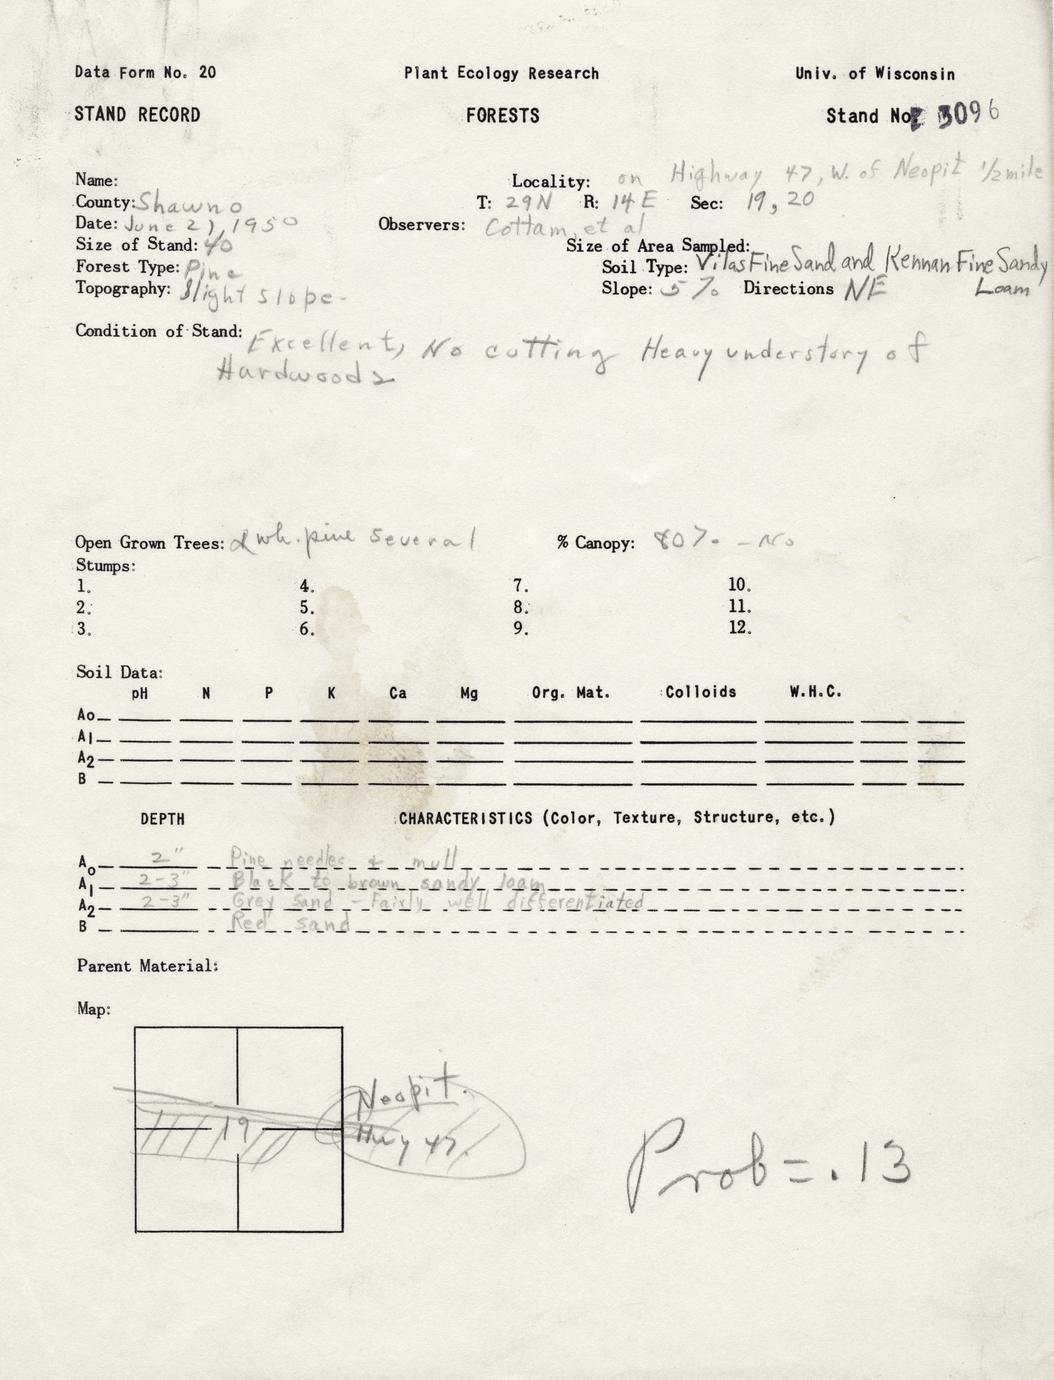 Data Form No. 20 Plant Ecology Research Univ. of Wisconsin
STAND RECORD FORESTS Stand No. 3096
Name: Locality: on Highway 47, W. of Neopit 1/2 mile
County: Shawno T: 29N R: 14E Sec: 19, 20
Date: June 21, 1950 Observers: Cottam, et al
Size of Stand: 40 Size of Area Sampled:
Forest Type: Pine Soil Type: Vilas Fine Sand and Kennan Fine Sandy Loam
Topography: Slight slope - Slope: 5% Directions NE
Condition of Stand: Excellent, No cutting Heavy understory of
Hardwoods
Open Grown Trees: wh. pine several % Canopy: 80% - No
Stumps:
1. 4. 7. 10.
2. 5. 8. 11.
3. 6. 9. 12.
Soil Data:
pH N P K Ca Mg Org. Mat. Colloids W.H.C.
Ao
A1
A2
B
DEPTH CHARACTERISTICS (Color, Texture, Structure, etc.)
Ao 2" Pine needles & mull
A1 2-3" Black to brown sandy loam
A2 2-3" Grey sand - Fairly well differentiated
B Red sand
Parent Material:
Map:
Neopit.
19 Hwy 47.
Prob = .13